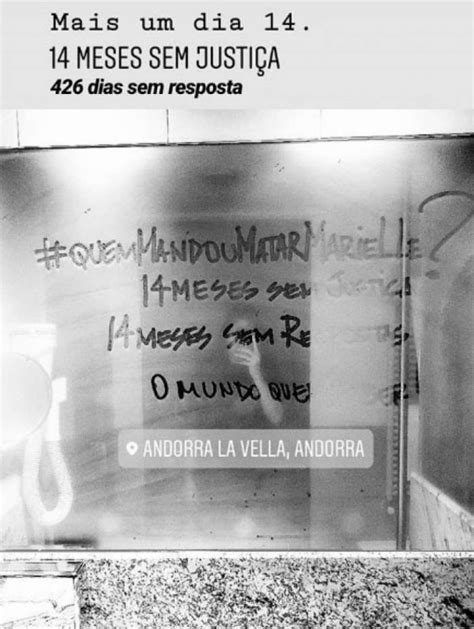 Mais um dia 14.
14 MESES SEM JUSTIÇA
426 dias sem resposta
#QUEMMANDOUMATARMARIELLE?
14 MESES SEM JUSTIÇA
14 MESES SEM
O MUNDO
ANDORRA LA VELLA, ANDORRA